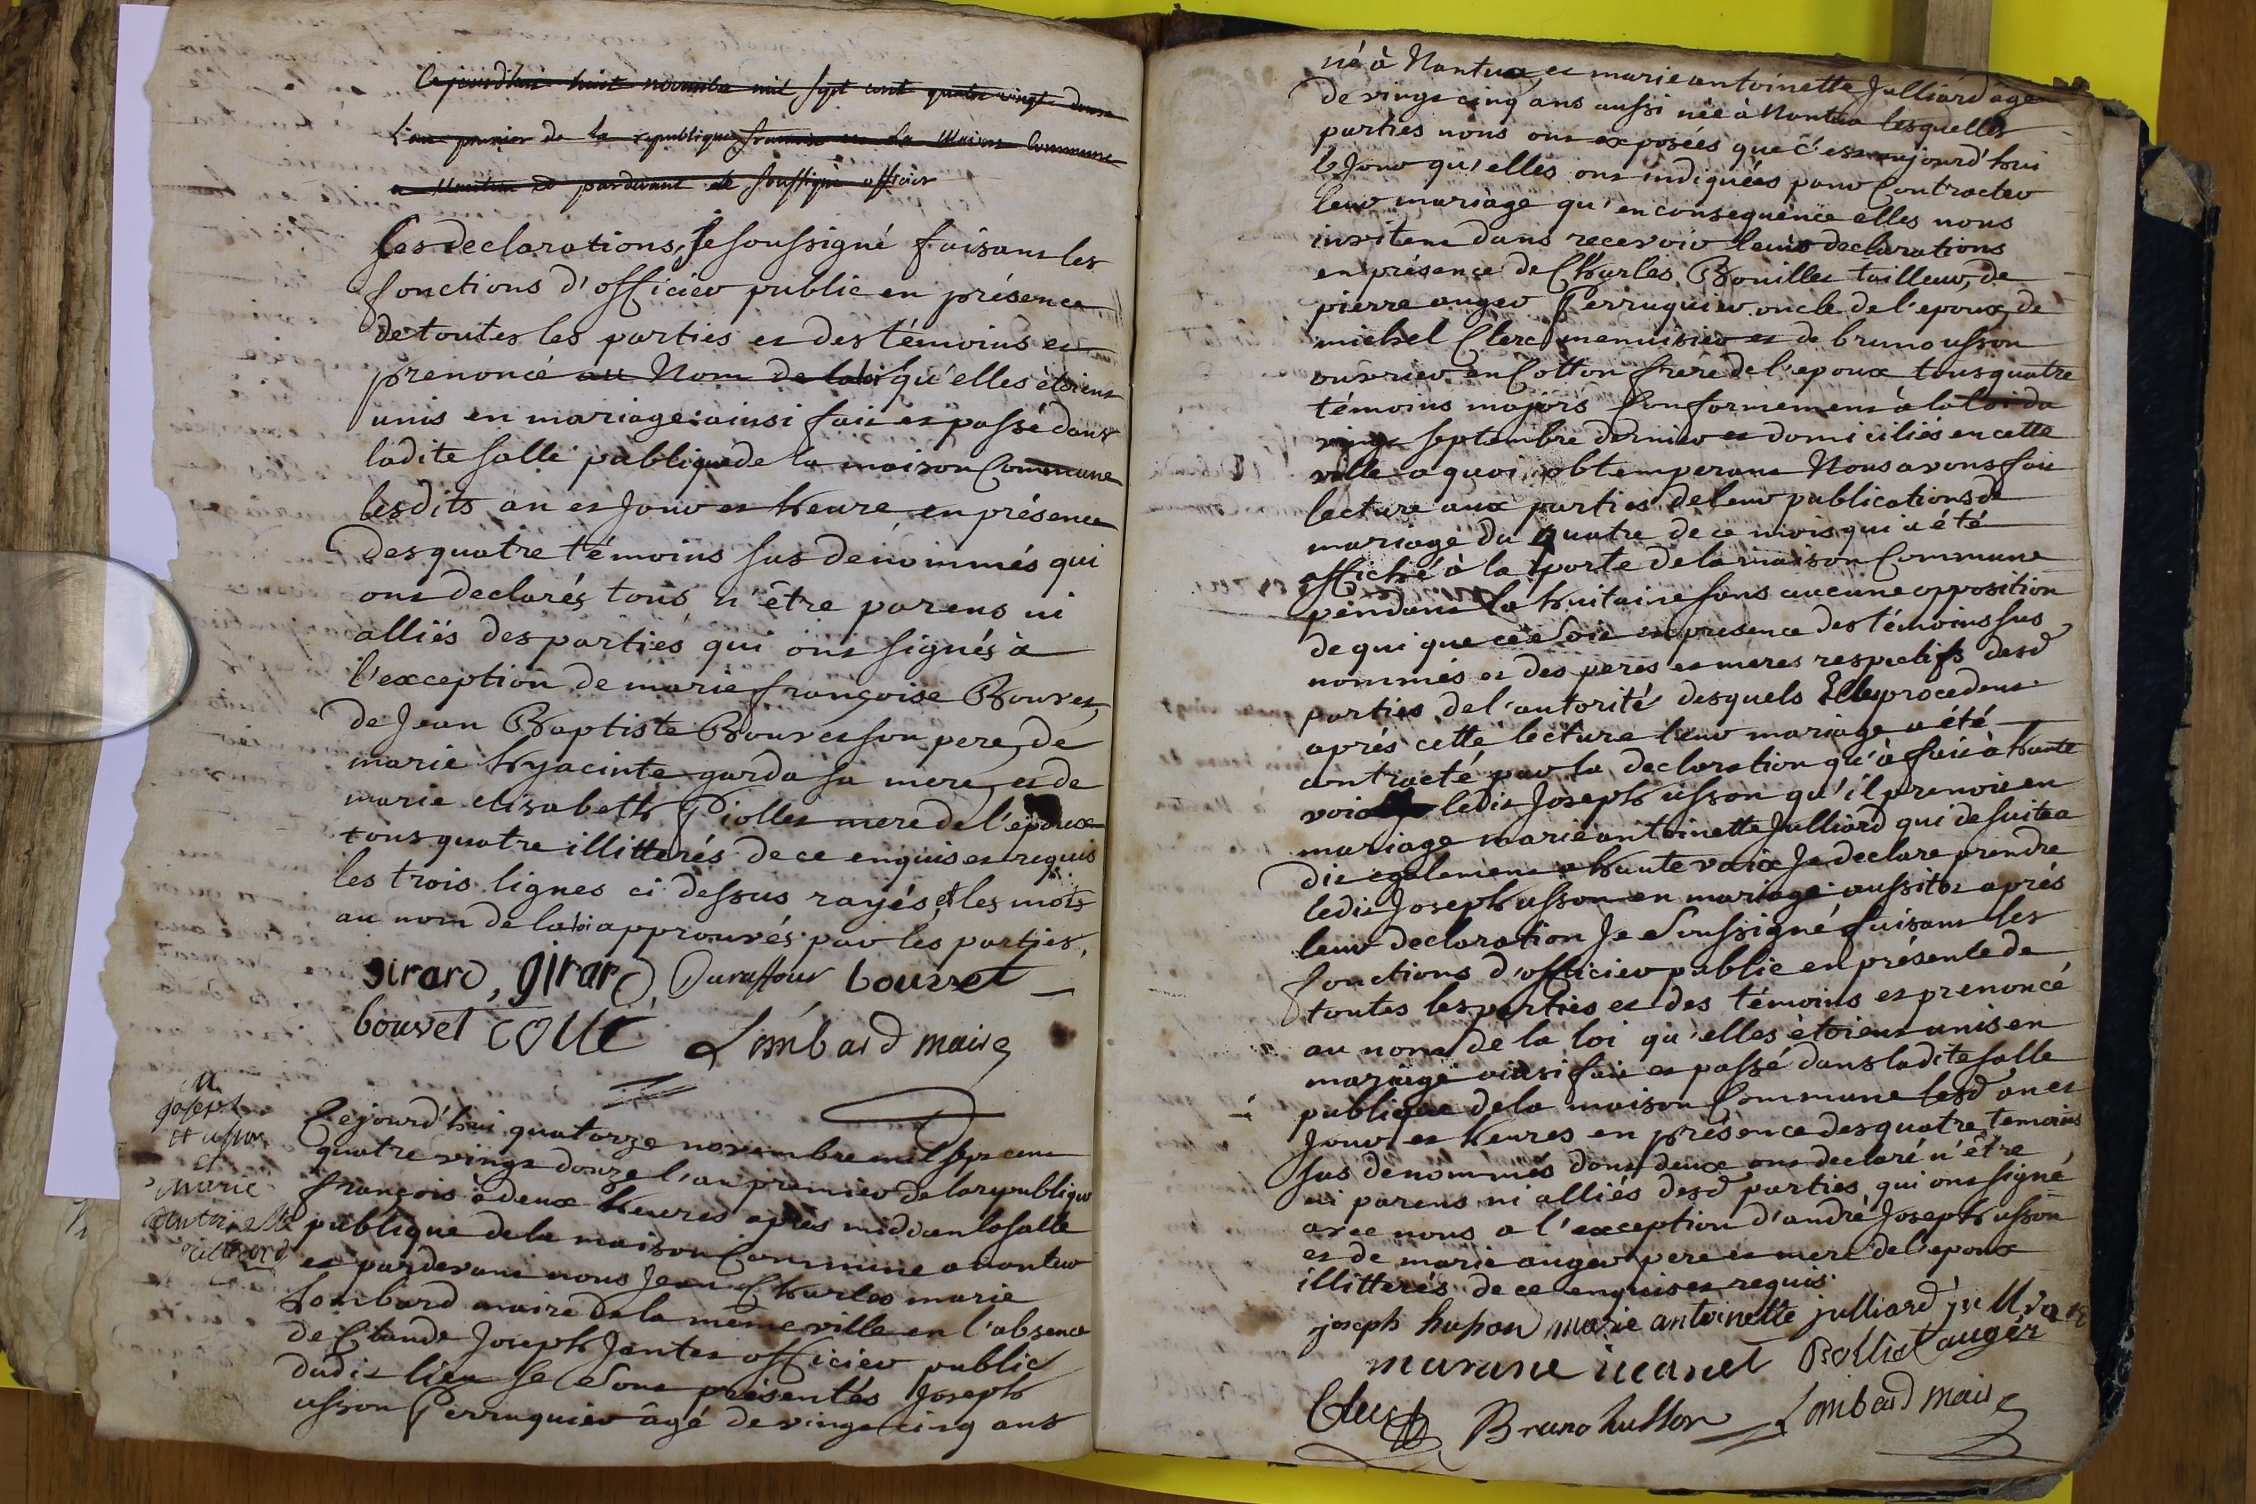 Cejourdhui huit novembre mil sept cent quatre vingt douze
l'an premier de la republique francoise en la Maison Commune
a Nantua et pardevant le soussigné officier
les declarations, Je soussigné faisant les
fonctions d'officier public en présence
de toutes les parties et des témoins et
prenoncé au Nom de la loi qu'elles étoient
unis en mariage: ainsi fait et passé dans
ladite salle publique de la maison Commune
lesdits an et Jour et heure en présence
des quatre témoins sus denommés qui
ont declarés tous n'être parens ni
alliés des parties qui ont signés à
l'exception de marie françoise Bouvet,
de Jean Baptiste Bouvet son pere, de
marie hyacinte garda sa mere, et de
marie elisabeth Piollet mere de l'epoux
tous quatre illitterés de ce enquis et requis
les trois lignes ci dessus rayés et les mots
au nom de la loi approuvés par les parties.
girard, girard, Duraffour bouvet
bouvet COLLE Lombard maire
M
joseph
et usson
et
Marie
Antoinette
julliard
Cejourd'hui quatorze novembre mil sept cent
quatre vingt douze l'an premier de la republique
françois à deux heures après midi en la salle
publique de la maison Commune a nantua
et pardevant nous Jean Charles marie
Lombard maire de la même ville en l'absence
de Claude Joseph Jantet officier public
dudit lieu se Sont présentés Joseph
usson Perruquier âgé de vingt cinq ans
né à Nantua, et marie antoinette Julliard agée
de vingt cinq ans aussi née à Nantua lesquelles
parties nous ont exposées que c'est aujourd'hui
le Jour qu'elles ont indiquées pour Contracter
leur mariage qu'en consequence elles nous
invitent dans recevoir leurs declarations
en présence de Charles Bouillet tailleur, de
pierre auger Perruquier oncle de l'epoux, de
michel Clerc menuisier et de bruno usson
ouvrier en Cotton frere de l'epoux tous quatre
témoins majors Conformement à la loi du
vingt septembre dernier et domiciliés en cette
ville a quoi obtemperant Nous avons fait
lecture aux parties de leur publications de
mariage du quatre de ce mois qui a été
affiché à la porte de la maison Commune
pendant la huitaine sans aucune opposition
de qui que ce Soit en presence des témoins sus
nommés et des peres et meres respectifs desd
parties de l'autorité desquels Elles procedent
aprés cette lecture leur mariage a été
contracté par la declaration qu'a fait à haute
voix ledit Joseph usson qu'il prenoit en
mariage marie antoinette Julliard qui desuite a
dit egalement a haute voix Je declare prendre
ledit Joseph usson en mariage: aussitot aprés
leur declaration Je Soussigné faisant les
fonctions d'officier public en présente de
toutes les parties et des témoins et prenoncé
au nom de la loi qu'elles étoient unis en
mariage ainsi fait et passé dans ladite salle
publique de la maison Commune lesd an et
Jour et heures en présence des quatre temoins
sus denommés dont deux ont declaré n'être
ni parens ni alliés desd parties, qui ont signé
avec nous a l'exception d'andré Joseph usson
et de marie auger pere et mere de l'epoux
illitterés de ce enquis et requis.
joseph huson marie antoinette julliard julliard
mariane Bolliet auger
Clerc Bruno husson Lombard maire